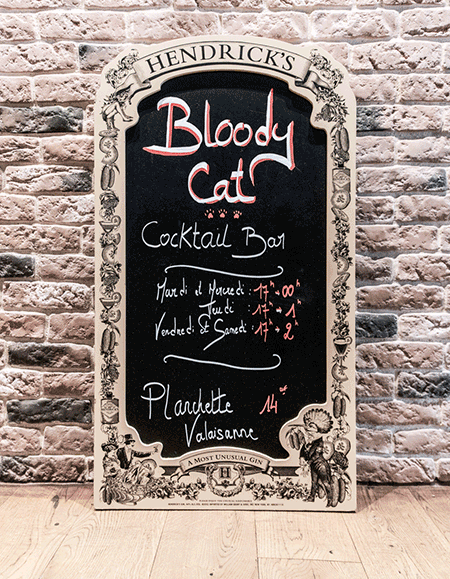 HENDRICK'S
Bloody
Cat
Cocktail Bar
Mardi et Mercredi : 17h → 00h
Jeudi : 17h → 1h
Vendredi et Samedi : 17h → 2h
Planchette 14.-
Valaisanne
A MOST UNUSUAL GIN
H